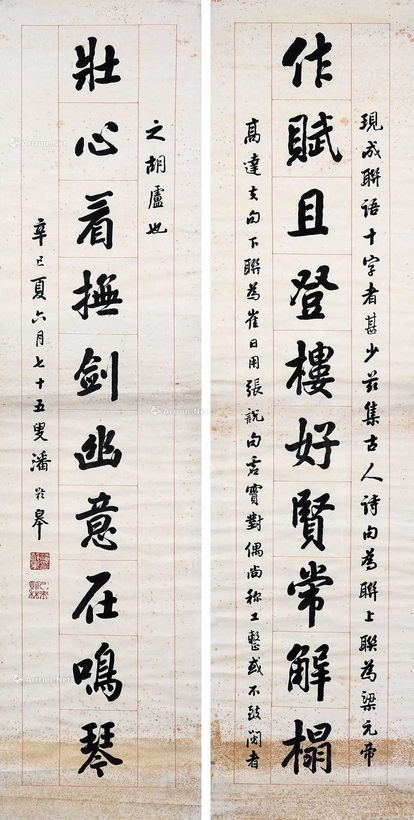 現成聯語十字者甚少茲集古人詩句為聯上聯為梁元帝
作賦且登樓好賢常解榻
高達夫句下聯為崔日用張說句虛實對偶尚稱工整或不致閱者
之胡盧也
壯心看撫劍幽意在鳴琴
辛巳夏六月七十五叟潘齡皋
Artron.Net